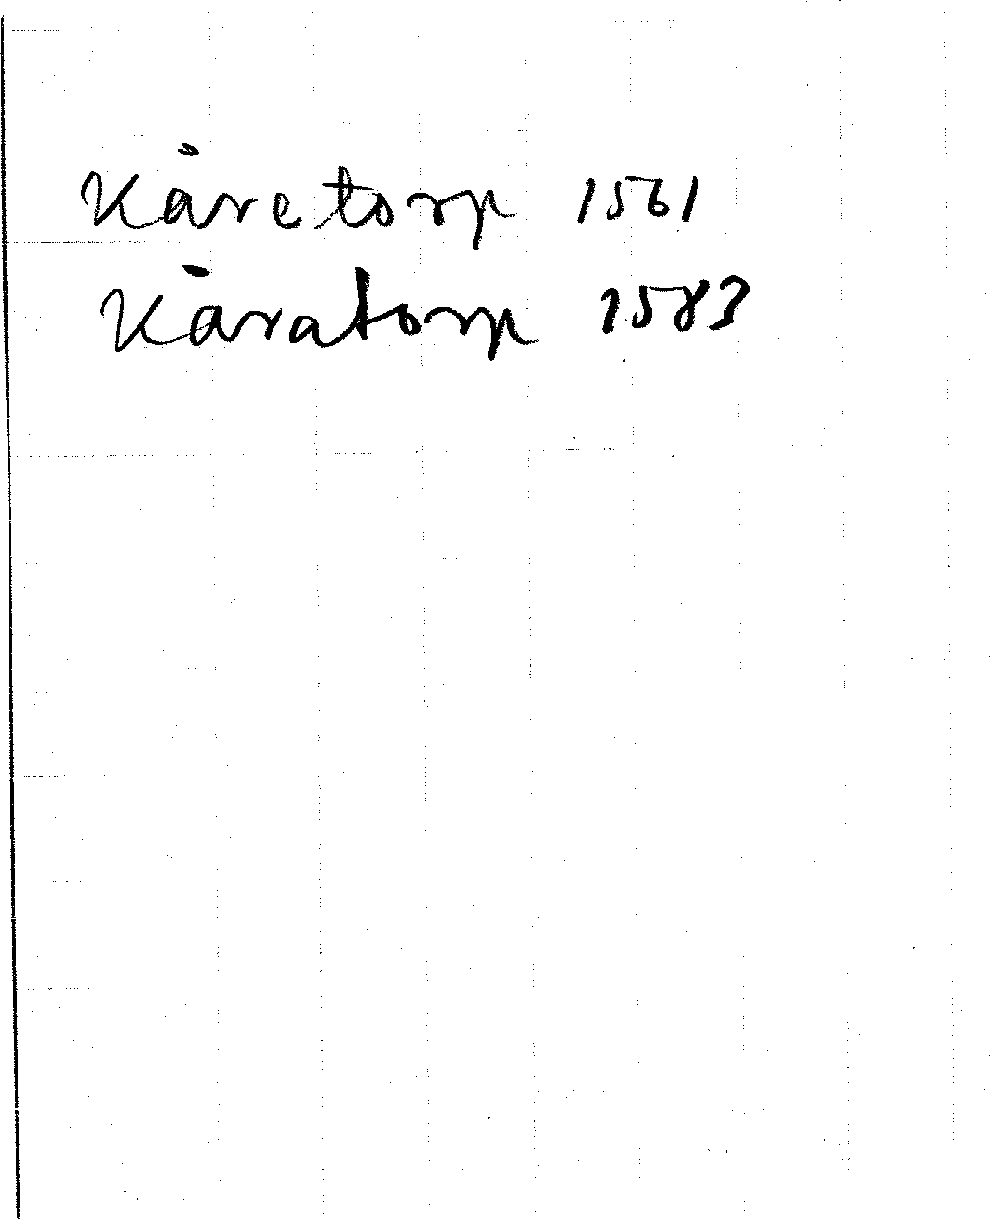 Kåretorp 1561
Kåratorp 1583